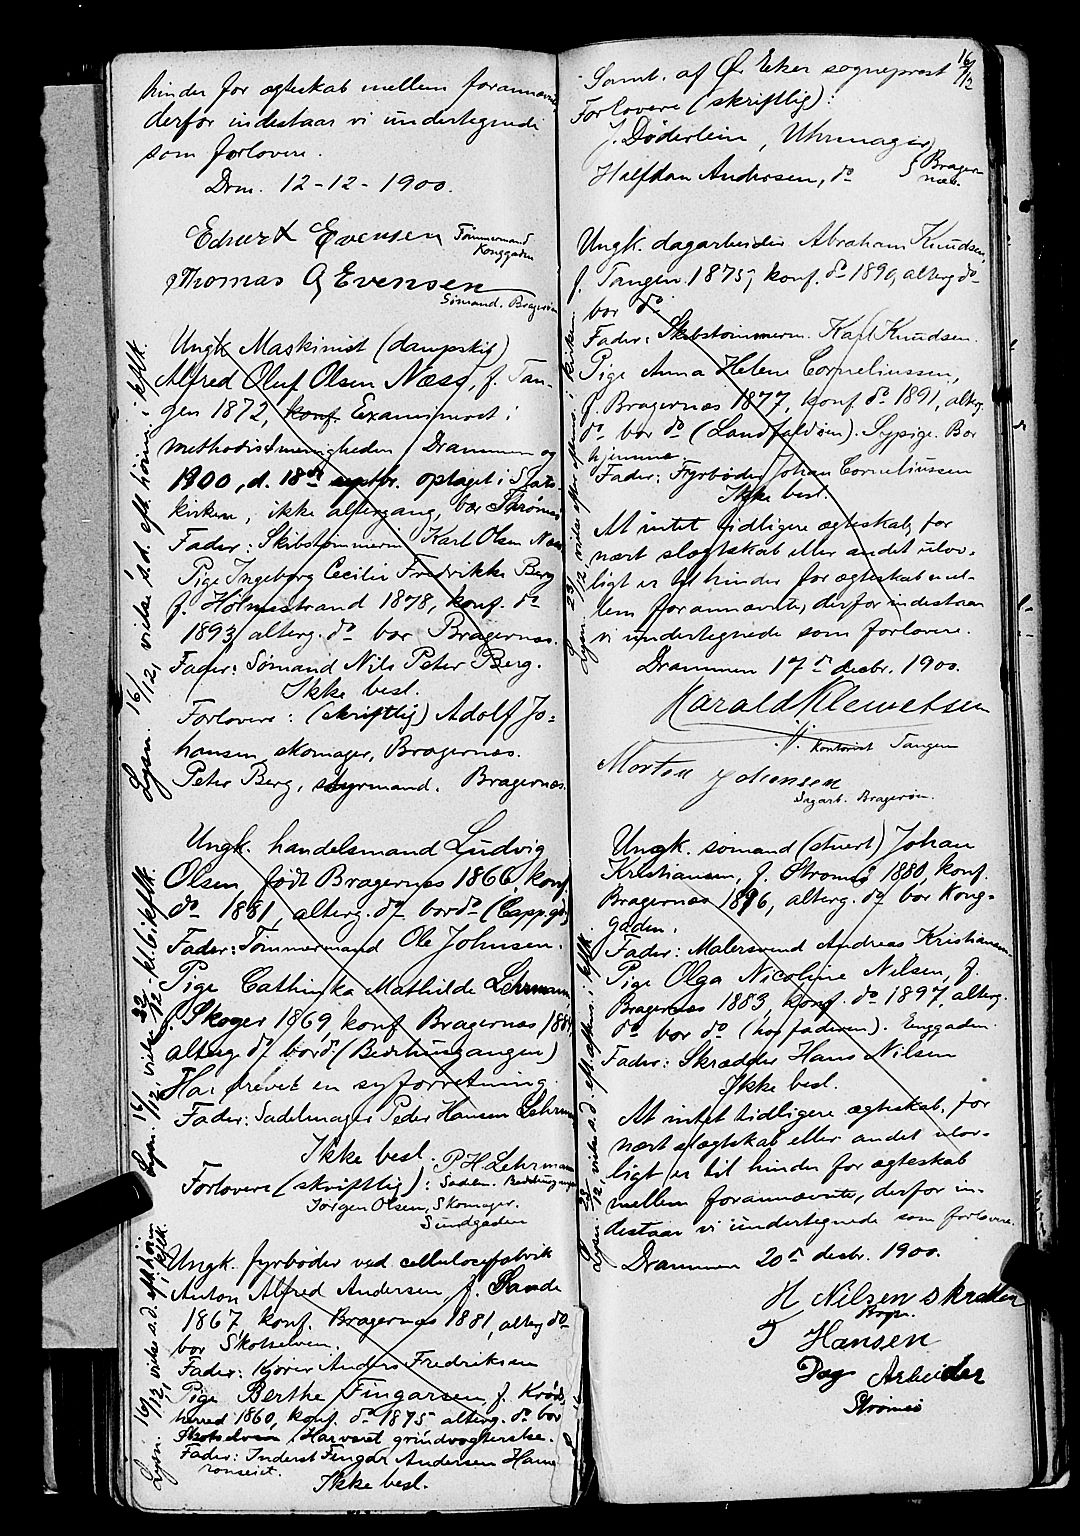 hinder for ægteskab mellem forannævnte
derfor indestaar vi undertegnede
som forlovere.
Drm. 12-12-1900.
Edvard Evensen Tømmermand
Konggaden
Thomas G Evensen
Sømand. Bragerøen
Ungk. Maskinist (dampskib)
Alfred Oluf Olsen Næss, f. Tan-
gen 1872, konf. Examineret i
methodistmenigheden Drammen og
1900, d. 18de septbr. optaget i Stats-
kirken, ikke altergang, bor Strømsø
Fader: Skibstømmerm. Karl Olsen Næss
Pige Ingeborg Cecilie Fredrikke Berg
f. Holmestrand 1878, konf. do
1893, alterg. do bor Bragernæs.
Fader: Sømand Nils Peter Berg.
Ikke besl.
Forlovere: (skriftlig) Adolf Jo-
hansen, skomager, Bragernæs.
Peter Berg, styrmand. Bragernæs.
Lysn. 16/12, vielse s.d. eft. høim. i kflk.
Ungk. handelsmand Ludvig
Olsen, født Bragernæs 1866, konf.
do 1881, alterg. do bor do (Capp.gd)
Fader: Tømmermand Ole Johnsen.
Pige Cathinka Mathilde Lehrmann
f. Skoger 1869, konf. Bragernæs 1884
alterg. do bor do (Bedehusgangen)
Har drevet en syforretning.
Fader: Sadelmager Peder Hansen Lehrmann
Ikke besl.
Forlovere (skriftlig): P. H. Lehrmann
Sadelm. Bedehusgangen
Jørgen Olsen, Skomager.
Sundgaden
Lysn. 16/12, vielse 22/12 kl. 6 i kflk.
Ungk. fyrbøder ved cellulosefabrik
Anton Alfred Andersen, f. Sande
1867, konf. Bragernæs 1881, alterg. do
bor Skotselven.
Fader: Kjører Anders Fredriksen
Pige Berthe Fingarsen, f. Krøds-
herred 1860, konf. do 1875 alterg. do bor
Skotselven. Har været grindvogterske.
Fader: Inderst Fingar Andersen Ham-
Ikke besl.
Lysn. 16/12, vielse s.d. eft. høim. i kflk.
16/12
Samt. af Ø. Eker sogneprest
Forlovere (skriftlig):
J. Døderlein, Uhrmager
Halfdan Andersen, do } Brager-
næs.
Ungk. dagarbeider Abraham Knudsen,
f. Tangen 1875, konf. do 1890, alterg. do
bor do
Fader: Skibstømmerm. Karl Knudsen.
Pige Anna Helene Corneliussen,
f. Bragernæs 1877, konf. do 1891, alterg.
do bor do (Landfaldøen). Sypige. Bor
hjemme.
Fader: Fyrbøder Johan Corneliussen
Ikke besl.
At intet tidligere ægteskab, for
nært slægtskab eller andet ulov-
ligt er til hinder for ægteskab mel-
lem forannævnte, derfor indestaar
vi undertegnede som forlovere.
Drammen 17de decbr. 1900.
Harald Klewetsen
kontorist Tangen
Morten Johansen
Bragerøen.
Lysn. 23/12, vielse i kirken.
Ungk. sømand (stuert) Johan
Kristiansen, f. Strømsø 1880, konf.
Bragernæs 1896, alterg. do bor Kong-
gaden.
Fader: Malersvend Andreas Kristiansen
Pige Olga Nicoline Nilsen, f.
Bragernæs 1883, konf. do 1897, alterg.
do bor do (hos faderen). Enggaden.
Fader: Skrædder Hans Nilsen
Ikke besl.
At intet tidligere ægteskab, for
nært slægtskab eller andet ulov-
ligt er til hinder for ægteskab
mellem forannævnte, derfor in-
destaar vi undertegnede som forlovere.
Drammen 20de decbr. 1900.
H Nilsen skræder
Brgn.
T Hansen
Dag Arbeider
Strømsø
Lysn. 23/12, vielse s.d. eft. aftens. i kflk.